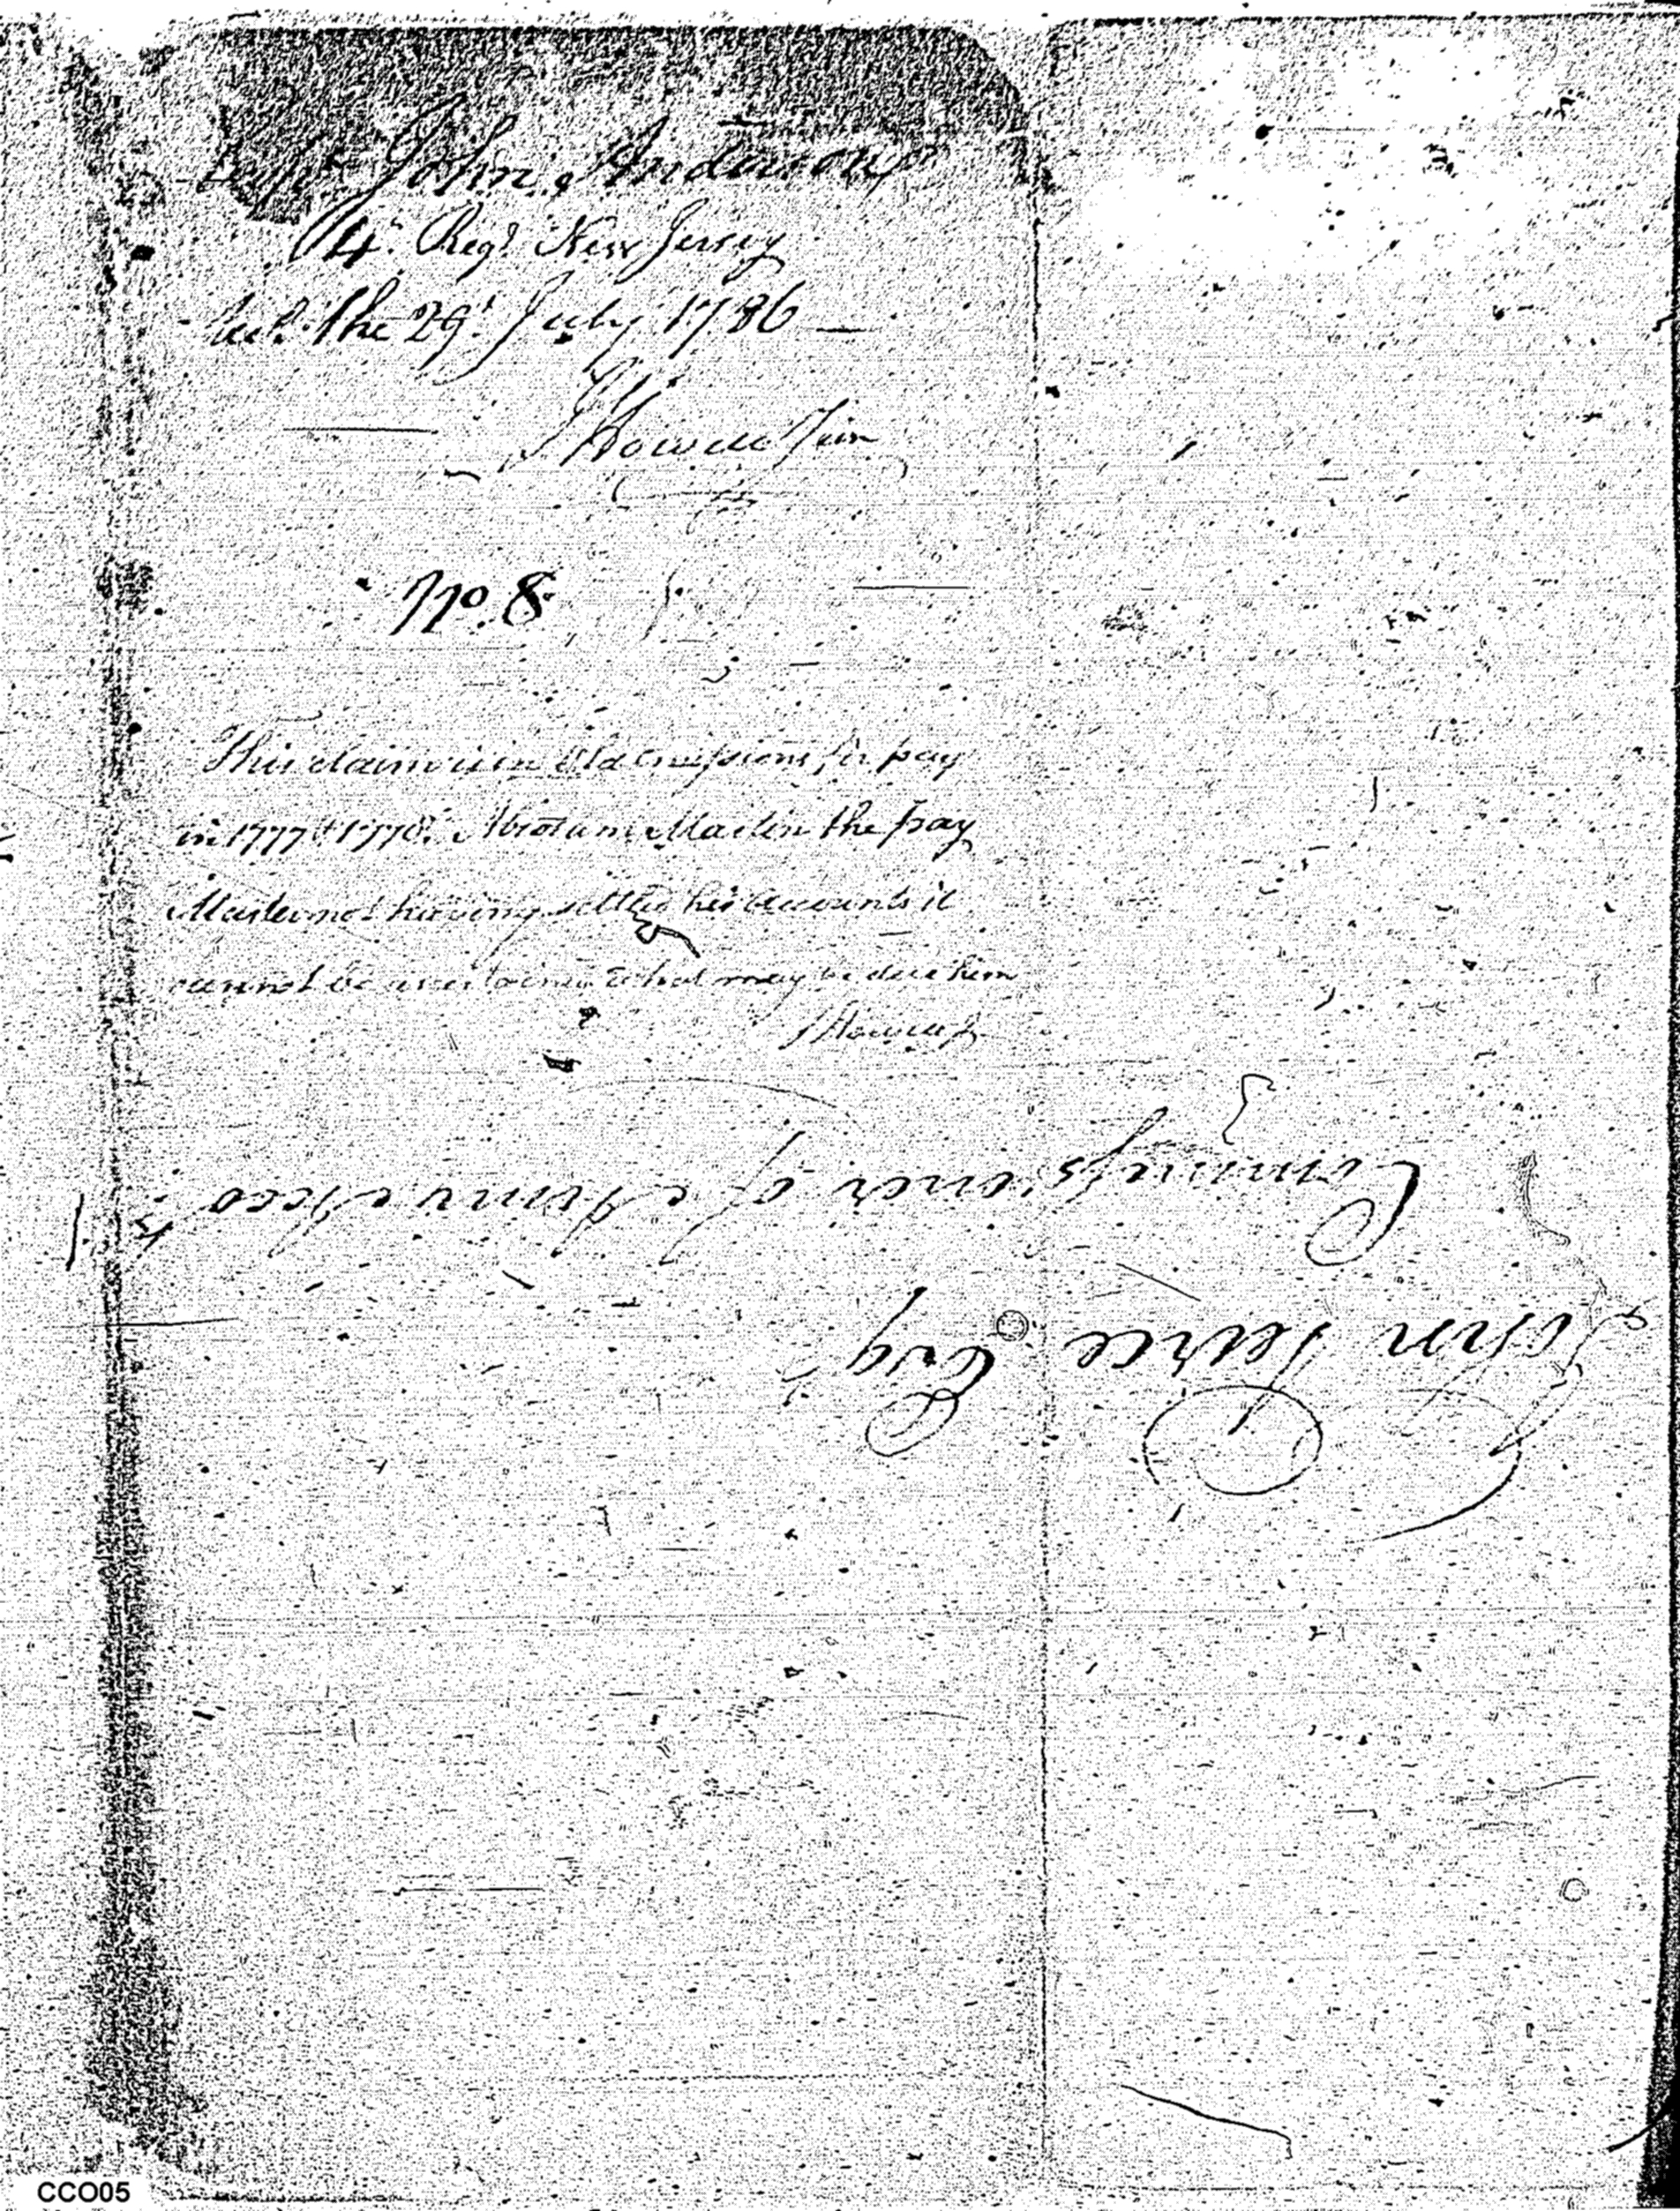 Capt. John Anderson
4th. Regt. New Jersey
Recd. the 29t. July 1786
J Howell Jun
No. 8
This claim is in old emissions for pay
in 1777 & 1778. Abraham Martin the pay
Master not having settled his accounts it
cannot be ascertained what may be due him
J Howell Jr
John Peirce Esqr
Commissioner of Army Accots
CCO05